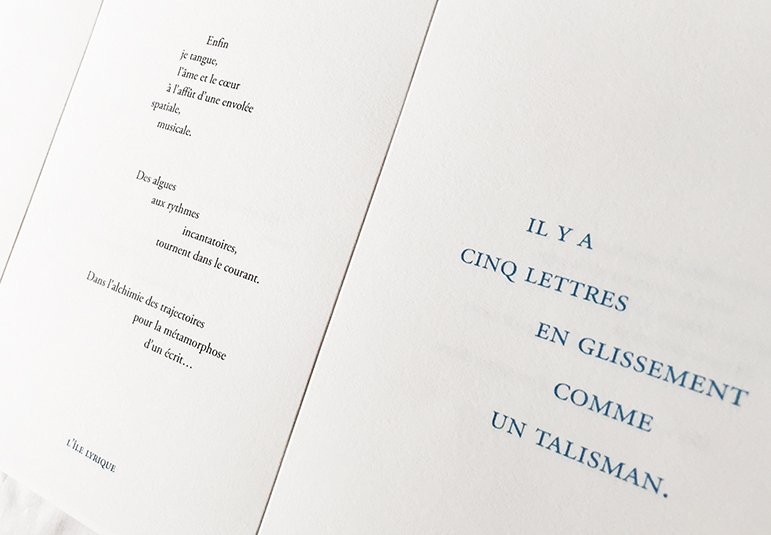 Enfin
je tangue,
l'âme et le cœur
à l'affût d'une envolée
spatiale,
musicale.
Des algues
aux rythmes
incantatoires,
tournent dans le courant.
Dans l'alchimie des trajectoires
pour la métamorphose
d'un écrit…
L'ÎLE LYRIQUE
IL Y A
CINQ LETTRES
EN GLISSEMENT
COMME
UN TALISMAN.